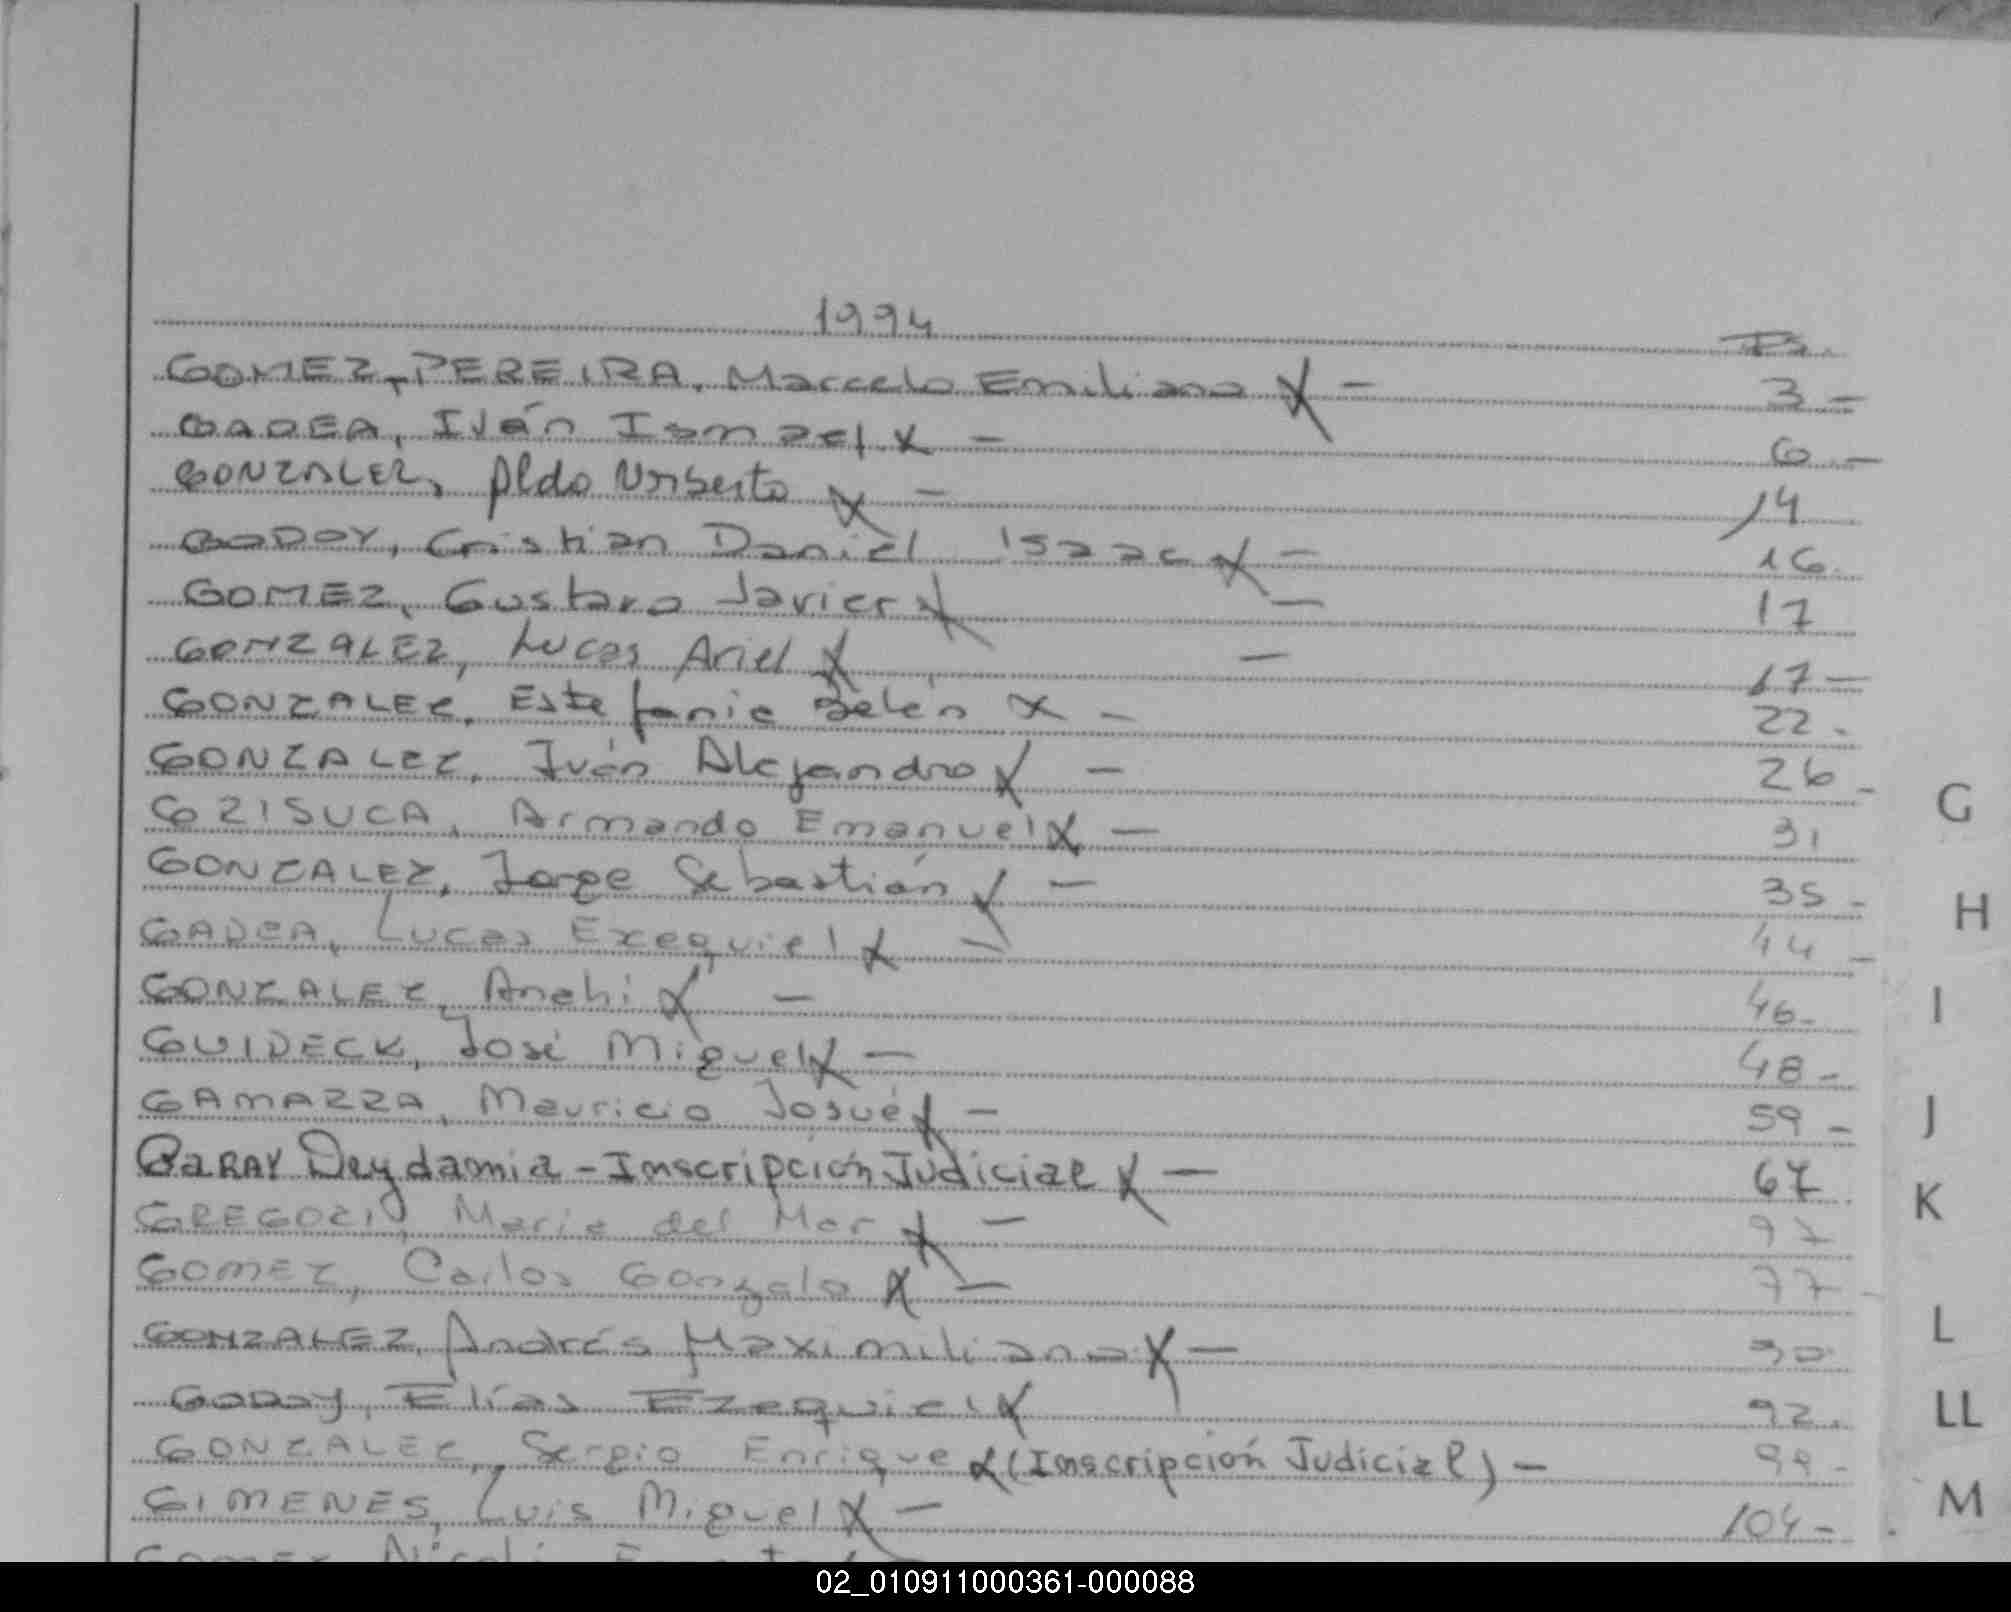 1994
Fs.
GOMEZ PEREIRA, Marcelo Emiliano X - 3 -
GADEA, Iván Ismael X - 6 -
GONZALEZ, Aldo Norberto X - 14
GODOY, Cristian Daniel Isaac X - 16
GOMEZ, Gustavo Javier X - 17
GONZALEZ, Lucas Ariel X - 17 -
GONZALEZ, Estefania Belén X - 22 -
GONZALEZ, Iván Alejandro X - 26 -
G
GZISUCA, Armando Emanuel X - 31
GONZALEZ, Jorge Sebastián X - 35 -
H
GADEA, Lucas Exequiel X - 44 -
GONZALEZ, Anahi X - 46 -
I
GUIDECK, José Miguel X - 48 -
GAMAZZA, Mauricio Josué X - 59 -
J
GARAY Deydamia - Inscripción Judicial X - 67
K
GREGORI, Maria del Mar X -
GOMEZ, Carlos Gonzalo X - 77 -
L
GONZALEZ, Andrés Maximiliano X - 90
GODOY, Elías Ezequiel X 92 -
LL
GONZALEZ, Sergio Enrique X (Inscripción Judicial) - 99 -
GIMENES, Luis Miguel X - 104 -
M
02_010911000361-000088